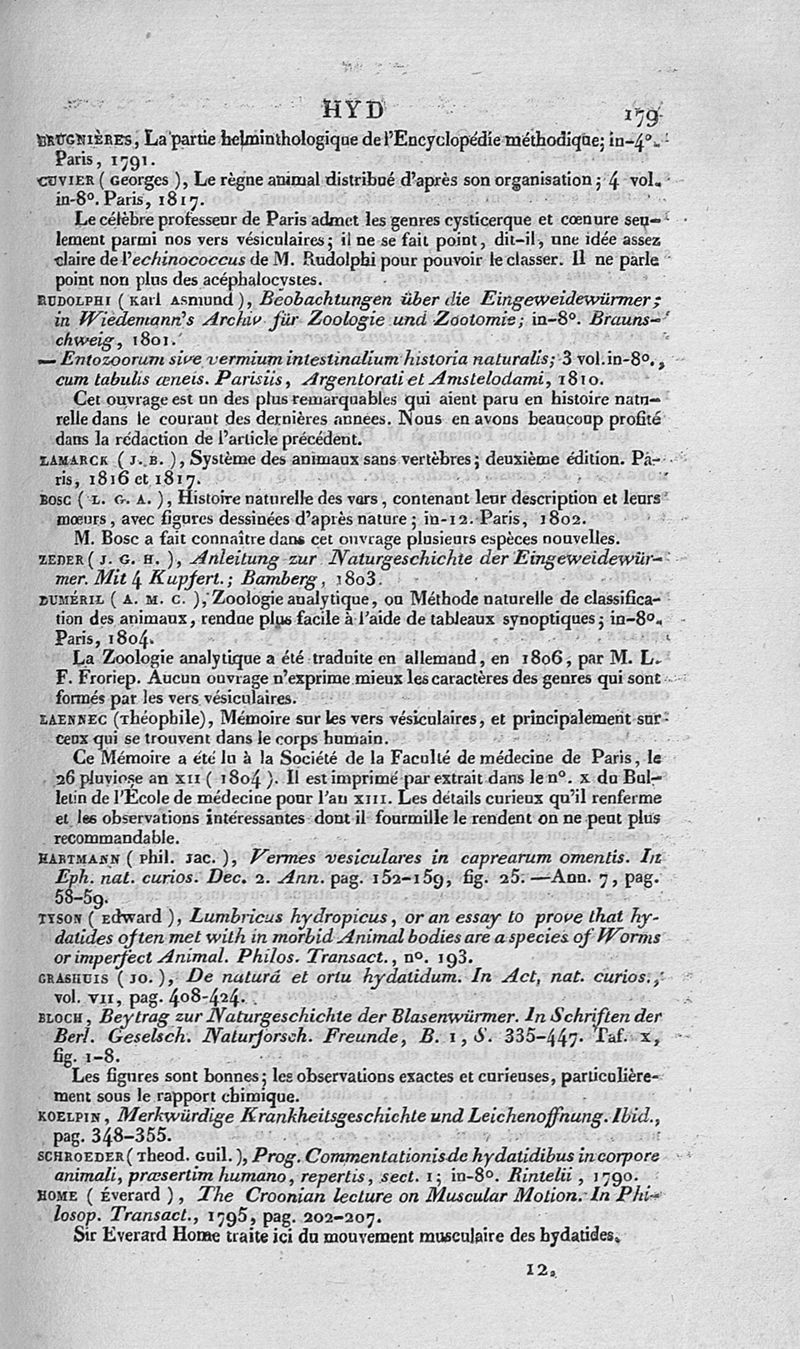 HYD 179
BRUGNIÈRES, La partie helminthologique de l'Encyclopédie méthodique; in-4°.
Paris, 1791.
CUVIER ( Georges ), Le règne animal distribué d'après son organisation; 4 vol.
in-8°. Paris, 1817.
Le célèbre professeur de Paris admet les genres cysticerque et cœnure seu-
lement parmi nos vers vésiculaires; il ne se fait point, dit-il, une idée assez
claire de l'echinococcus de M. Rudolphi pour pouvoir le classer. Il ne parle
point non plus des acéphalocystes.
RUDOLPHI ( Karl Asmund ), Beobachtungen über die Eingeweidewürmer;
in Wiedemann's Archiv für Zoologie und Zootomie; in-8°. Brauns-
chweig, 1801.
— Entozoorum sive vermium intestinalium historia naturalis; 3 vol. in-8°.,
cum tabulis æneis. Parisiis, Argentorati et Amstelodami, 1810.
Cet ouvrage est un des plus remarquables qui aient paru en histoire natu-
relle dans le courant des dernières années. Nous en avons beaucoup profité
dans la rédaction de l'article précédent.
LAMARCK ( J. B. ), Système des animaux sans vertèbres; deuxième édition. Pa-
ris, 1816 et 1817.
BOSC ( L. G. A. ), Histoire naturelle des vers, contenant leur description et leurs
mœurs, avec figures dessinées d'après nature; in-12. Paris, 1802.
M. Bosc a fait connaître dans cet ouvrage plusieurs espèces nouvelles.
ZEDER ( J. G. H. ), Anleitung zur Naturgeschichte der Eingeweidewür-
mer. Mit 4 Kupfert.; Bamberg, 1803.
DUMÉRIL ( A. M. C. ), Zoologie analytique, ou Méthode naturelle de classifica-
tion des animaux, rendue plus facile à l'aide de tableaux synoptiques; in-8°.
Paris, 1804.
La Zoologie analytique a été traduite en allemand, en 1806, par M. L.
F. Froriep. Aucun ouvrage n'exprime mieux les caractères des genres qui sont
formés par les vers vésiculaires.
LAENNEC (Théophile), Mémoire sur les vers vésiculaires, et principalement sur
ceux qui se trouvent dans le corps humain.
Ce Mémoire a été lu à la Société de la Faculté de médecine de Paris, le
26 pluviose an XII ( 1804 ). Il est imprimé par extrait dans le n°. X du Bul-
letin de l'École de médecine pour l'an XIII. Les détails curieux qu'il renferme
et les observations intéressantes dont il fourmille le rendent on ne peut plus
recommandable.
HARTMANN ( Phil. Jac. ), Vermes vesiculares in caprearum omentis. In
Eph. nat. curios. Dec. 2. Ann. pag. 152-159, fig. 25. — Ann. 7, pag.
58-59.
TYSON ( Edward ), Lumbricus hydropicus, or an essay to prove that hy-
datides often met with in morbid Animal bodies are a species of Worms
or imperfect Animal. Philos. Transact., n°. 193.
GRASHUIS ( JO. ), De naturâ et ortu hydatidum. In Act, nat. curios.,
vol. VII, pag. 408-424.
BLOCH, Beytrag zur Naturgeschichte der Blasenwürmer. In Schriften der
Berl. Geselsch. Naturforsch. Freunde, B. 1, S. 335-447. Taf. X,
fig. 1-8.
Les figures sont bonnes; les observations exactes et curieuses, particulière-
ment sous le rapport chimique.
KOELPIN, Merkwürdige Krankheitsgeschichte und Leichenoffnung. Ibid.,
pag. 348-355.
SCHROEDER ( Theod. Guil. ), Prog. Commentationis de hydatidibus in corpore
animali, præsertim humano, repertis, sect. 1; in-8°. Rintelii, 1790.
HOME ( Éverard ), The Croonian lecture on Muscular Motion. In Phi-
losop. Transact., 1795, pag. 202-207.
Sir Everard Home traite ici du mouvement musculaire des hydatides.
12.